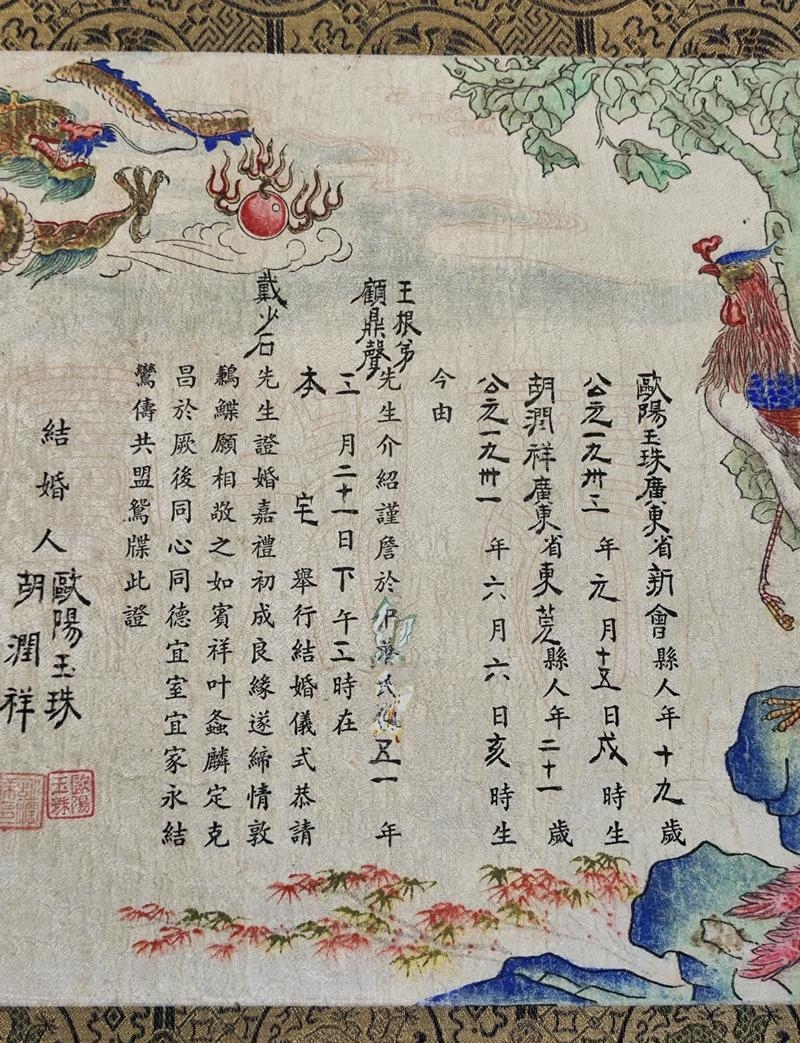 歐陽玉珠廣東省新會縣人年十九歲
公元一九卅三年元月十五日戍時生
胡潤祥廣東省東莞縣人年二十一歲
公元一九卅一年六月六日亥時生
今由
王根弟
顧鼎聲先生介紹謹詹於中華民國五一年
三月二十一日下午三時在
本宅舉行結婚儀式恭請
戴少石先生證婚嘉禮初成良緣遂締情敦
鶼鰈願相敬之如賓祥叶螽麟定克
昌於厥後同心同德宜室宜家永結
鸞儔共盟鴛牒此證
結婚人歐陽玉珠
胡潤祥
歐陽
玉珠